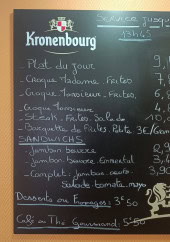 Service jusqu
13h45
Kronenbourg
- Plat du jour 9,
- Croque Madame Frites
- Croque Monsieur Frites
- Croque Monsieur 4,
- Steak Frites Salade 10
- Barquette de Frites Petite 3€/
SANDWICHS
- Jambon beurre
- Jambon beurre Emmental 3,
- Complet: jambon, oeufs
Salade tomate mayo
Desserts ou Fromages: 3€50
Café ou Thé Gourmand 5€50